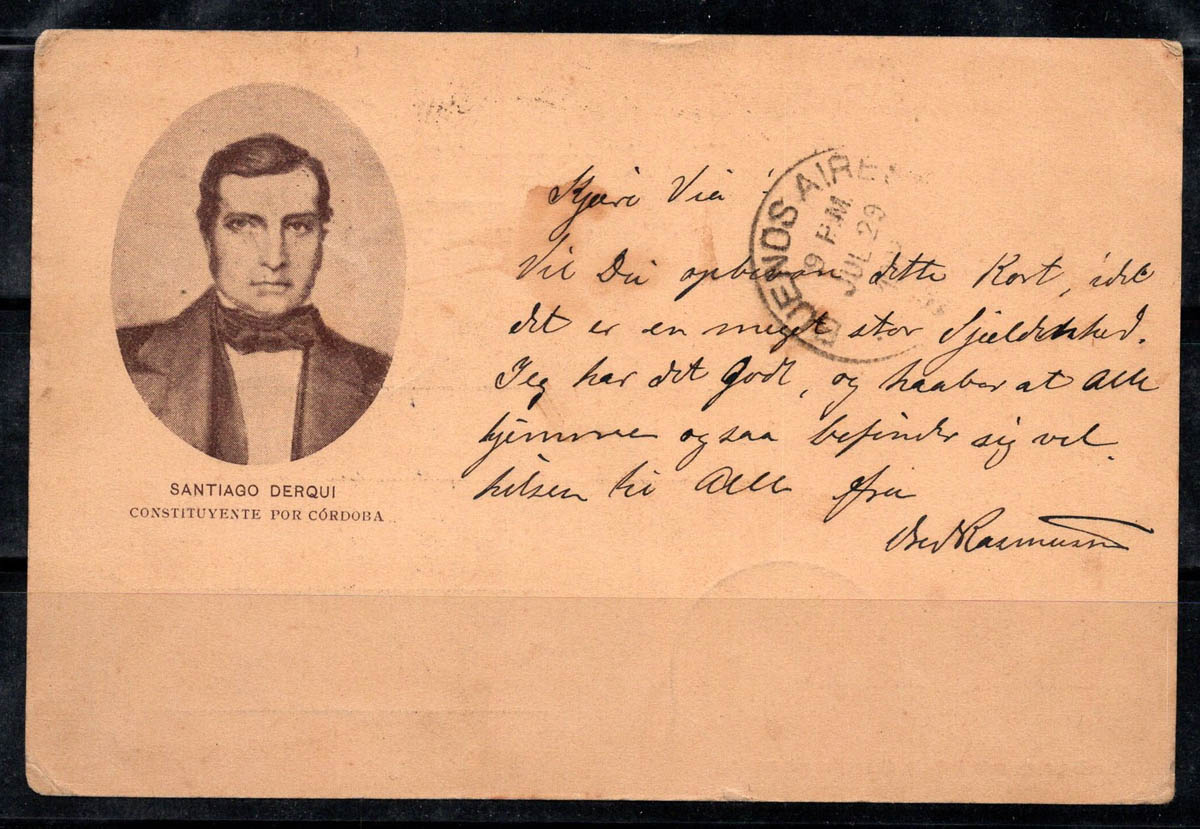 SANTIAGO DERQUI
CONSTITUYENTE POR CÓRDOBA
BUENOS AIRES
9 P.M.
JUL 29
Kjære
Vil Du opbevare dette Kort, idet
det er en meget stor Sjeldenhed.
Jeg har det Godt, og haaber at Alle
hjemme ogsaa befinder sig vel.
hilsen til Alle fra
Rasmussen